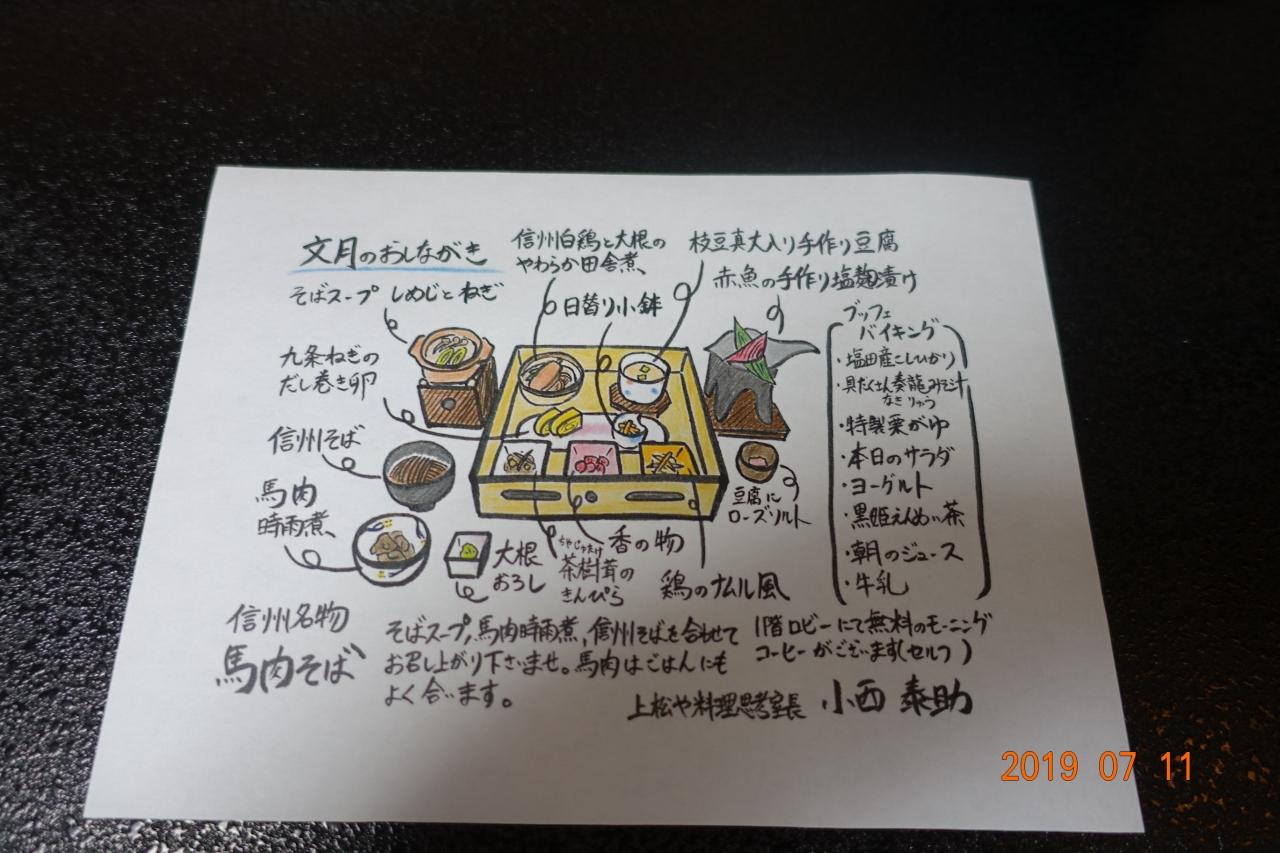 文月のおしながき
そばスープ しめじとねぎ
信州白鶏と大根の
やわらか田舎煮
日替り小鉢
枝豆真丈入り手作り豆腐
赤魚の手作り塩麹漬け
九条ねぎの
だし巻き卵
信州そば
馬肉
時雨煮
大根
おろし
ちゃじゅたけ
茶樹茸の
きんぴら
香の物
鶏のナムル風
豆腐に
ローズソルト
ブッフェ
バイキング
・塩田産こしひかり
・具だくさん奏龍みそ汁
なきりゅう
・特製粟がゆ
・本日のサラダ
・ヨーグルト
・黒姫えんめい茶
・朝のジュース
・牛乳
信州名物
馬肉そば
そばスープ、馬肉時雨煮、信州そばを合わせて
お召し上がり下さいませ。馬肉はごはんにも
よく合います。
1階ロビーにて無料のモーニング
コーヒーがございます(セルフ)
上松や料理思考室長 小西 泰助
2019 07 11